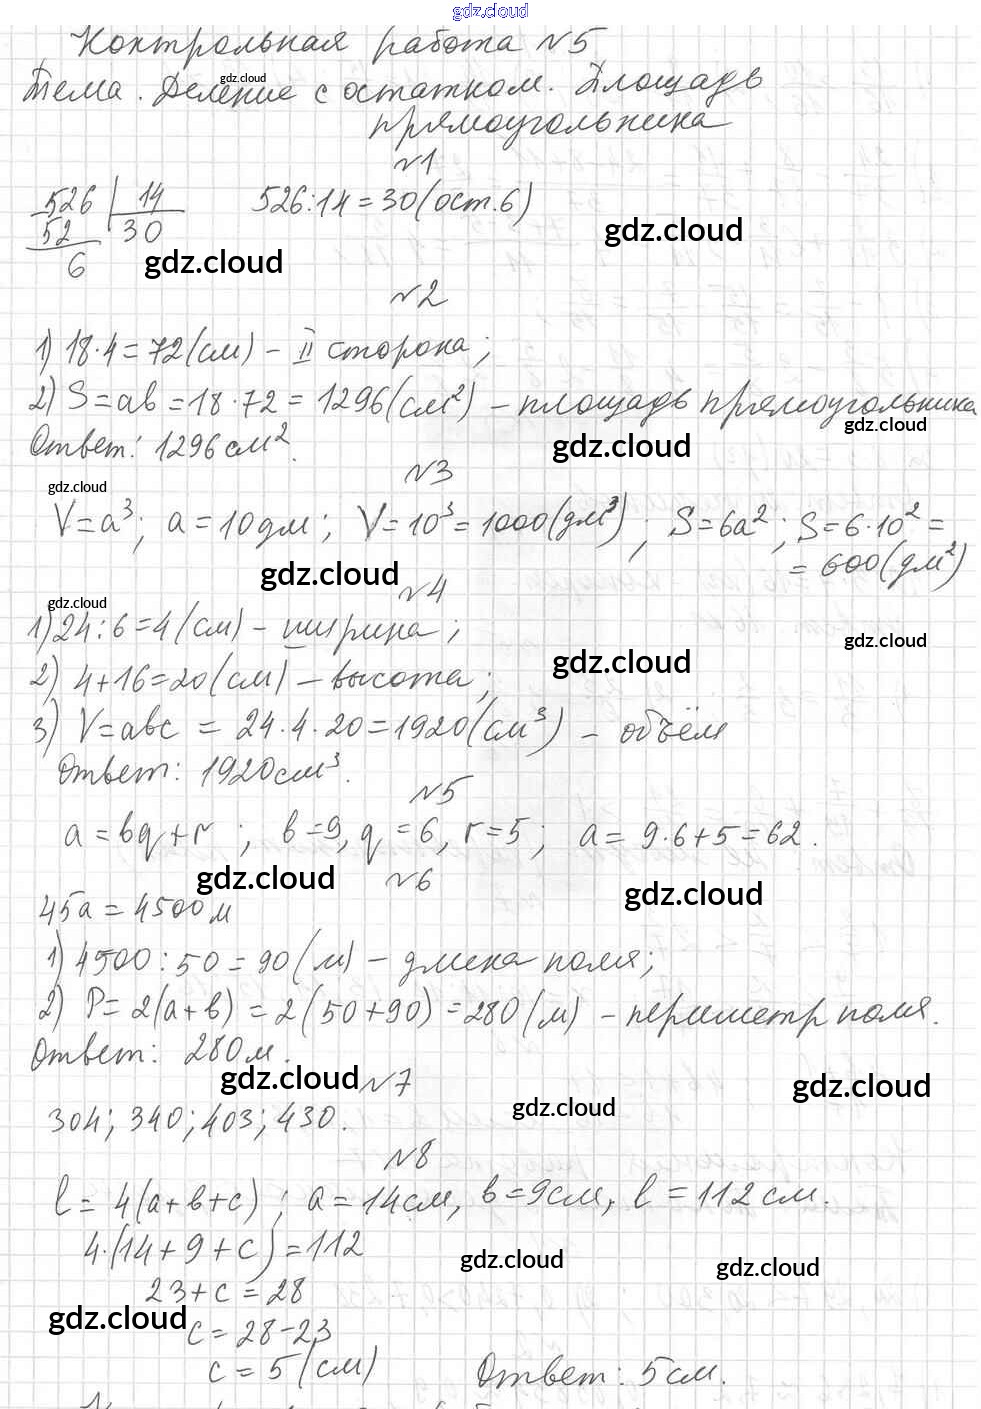 gdz.cloud
Контрольная работа №5
gdz.cloud
Тема. Деление с остатком. Площадь
прямоугольника
№1
526 | 14 526:14=30(ост.6)
52 30
gdz.cloud
6 gdz.cloud
№2
1) 18·4=72(см) – II сторона;
2) S=ab=18·72=1296(см²) – площадь прямоугольника
gdz.cloud
Ответ: 1296 см². gdz.cloud
№3
gdz.cloud
V=a³; a=10дм; V=10³=1000(дм³); S=6a²; S=6·10²=
=600(дм²)
gdz.cloud
№4
gdz.cloud
1) 24:6=4(см) – ширина;
gdz.cloud
2) 4+16=20(см) – высота; gdz.cloud
3) V=abc = 24·4·20=1920(см³) – объём
Ответ: 1920см³.
№5
a=bq+r; b=9, q=6, r=5; a=9·6+5=62.
gdz.cloud №6 gdz.cloud
45а=4500м
1) 4500:50=90(м) – длина поля;
2) P=2(a+b)=2(50+90)=280(м) – периметр поля.
Ответ: 280м.
gdz.cloud №7 gdz.cloud
304; 340; 403; 430. gdz.cloud
№8
l=4(a+b+c); a=14см, b=9см, l=112см.
4·(14+9+c)=112 gdz.cloud
23+c=28 gdz.cloud
gdz.cloud
c=28-23
c=5(см) Ответ: 5см.